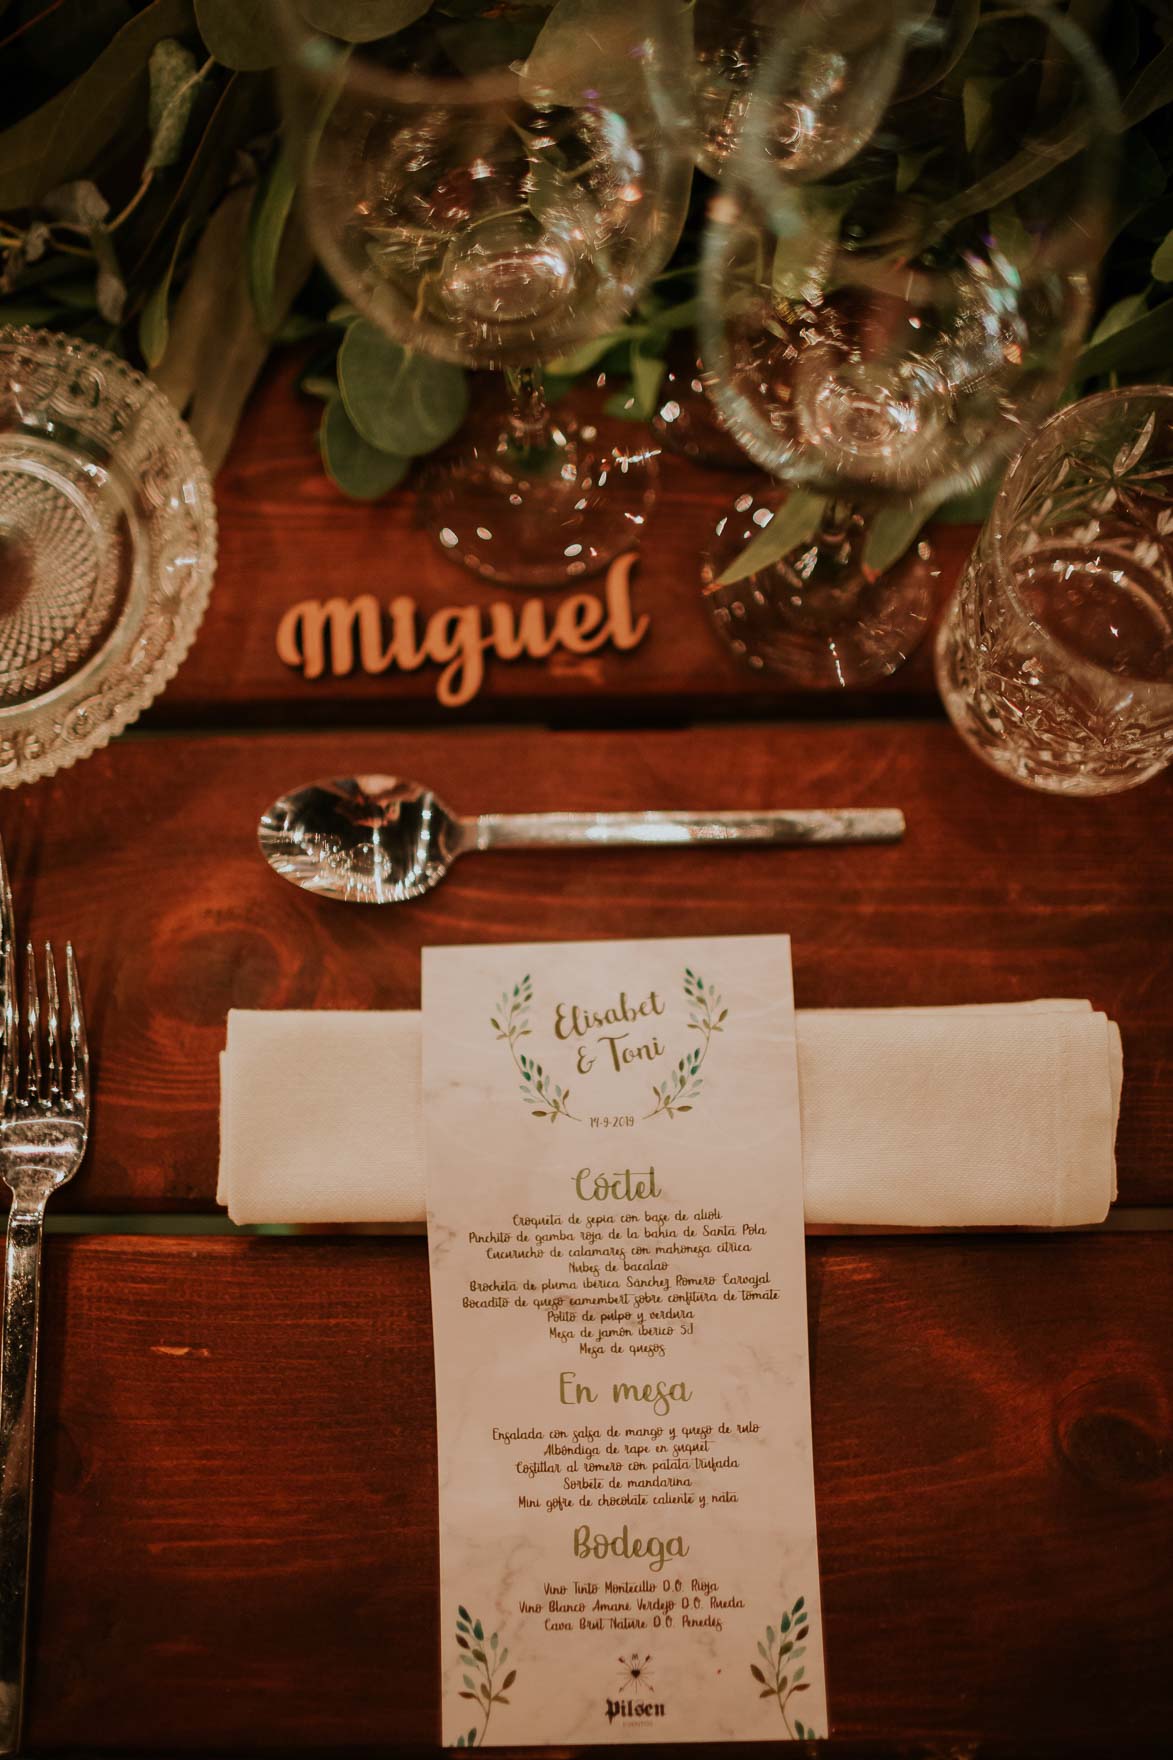 Miguel
Elisabet
& Toni
14-9-2019
Cóctel
Croqueta de sepia con base de alioli
Pinchito de gamba roja de la bahia de Santa Pola
Cucurucho de calamares con mahonesa citrica
Nubes de bacalao
Brocheta de pluma iberica Sánchez Romero Carvajal
Bocadito de queso camembert sobre confitura de tomate
Potito de pulpo y verdura
Mesa de jamón iberico 5J
Mesa de quesos
En mesa
Ensalada con salsa de mango y queso de rulo
Albóndiga de rape en suquet
Costillar al romero con patata trufada
Sorbete de mandarina
Mini gofre de chocolate caliente y nata
Bodega
Vino Tinto Montecillo D.O. Rioja
Vino Blanco Amane Verdejo D.O. Rueda
Cava Brut Nature D.O. Penedes
Pilsen
EVENTOS